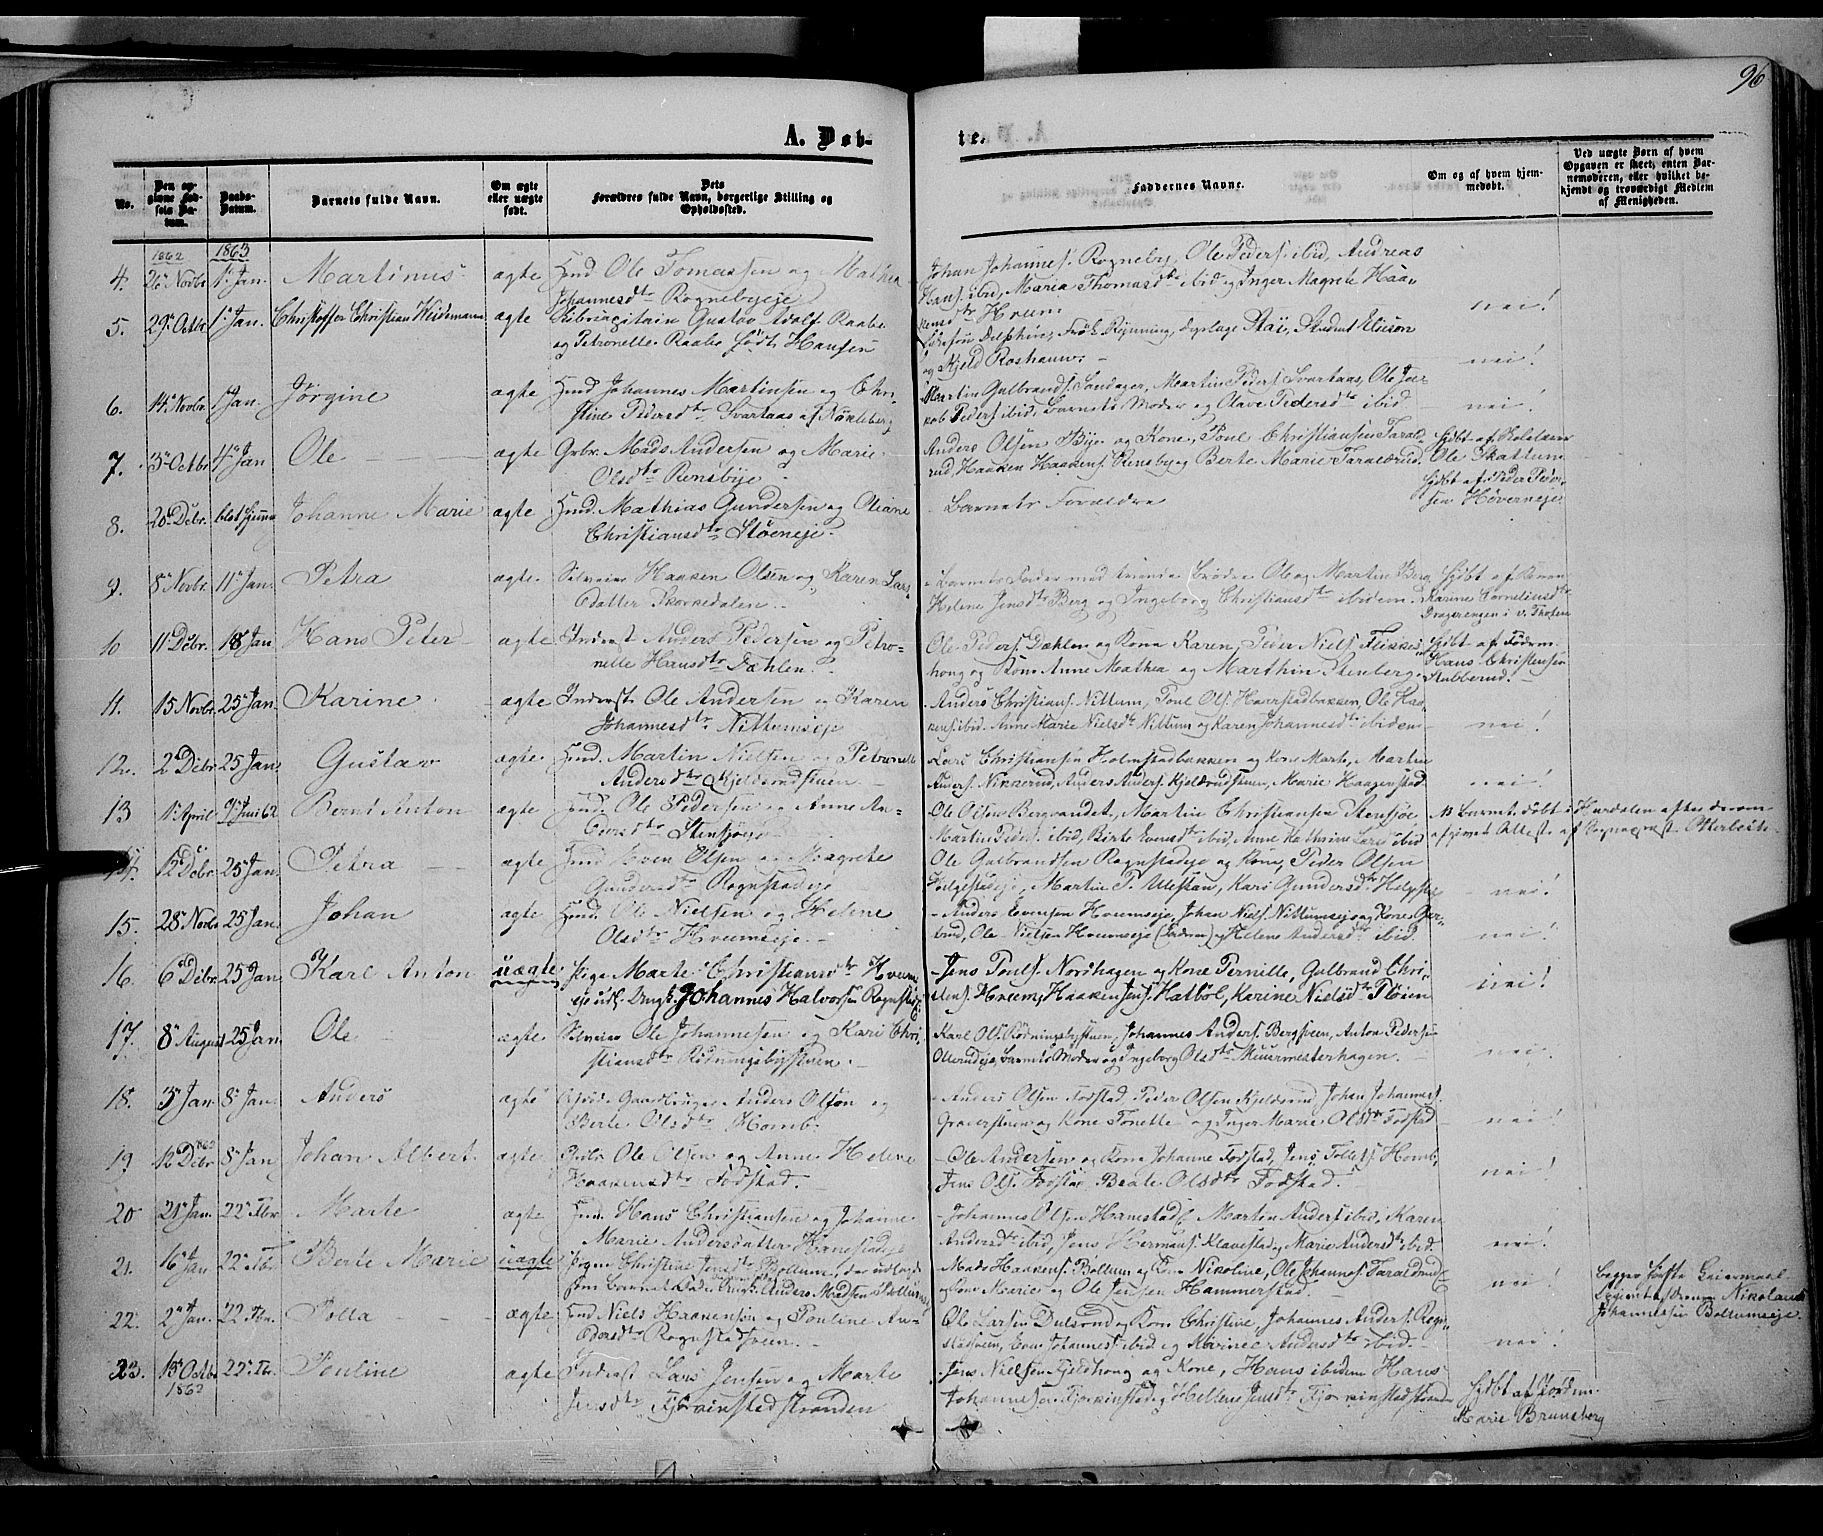 96
A. Døb-
te.
No.
Den op-
givne Fød-
sels Da-
tum.
Daabs-
Datum.
Barnets fulde Navn.
Om ægte
eller uægte
født.
Dets
Forældres fulde Navn, borgerlige Stilling og
Opholdssted.
Faddernes Navne.
Om og af hvem hjem-
medøbt.
Ved uægte Børn af hvem
Opgaven er skeet; enten Bar-
nemoderen, eller hvilket be-
kjendt og troværdigt Medlem
af Menigheden.
1862 1863
4. 26 Novbr. 1 Jan. Martinus ægte Huusmd. Ole Tomassen og Mathea
Johannesdtr Rognebyeje
Johan Johannes. Rogneby, Ole Peders. ibid, Andreas
Hans. ibid, Maria Thomasdtr ibid og Inger Magrete Haa-
kensdtr Hveem nei!
5. 29 Octbr. 1 Jan. Christoffer Christian Weidemann ægte Gustav Adolf Raabe
og Petronelle Raabe født Hansen
Delphin, Frøk Rynning, Student
og Kjeld Roshauw. nei!
6. 14 Novbr. 1 Jan. Jørgine ægte Huusmd. Johannes Martinsen og Chri-
stine Pedersdtr Svartaas af Nøkleberg
Martin Gulbrands. Sandager, Martin Peders. Svartaas, Ole Ja-
kob Peders. ibid, Barnets Moder og Olave Pedersdtr ibid nei!
7. 3 Octbr 4 Jan Ole ægte Grbr. Mads Andersen og Marie
Olsdtr Rensbye
Anders Olsen Bye og Kone, Poul Christiansen Farald-
rud, Haaken Haakens. Rensby og Berte Marie Faraldrud.
Hjdbt af Skolelærer
Ole Skattum
8. 28 Debr. blot hjemme Johanne Marie ægte Huusmd. Mathias Gundersen og Oliane
Christiansdtr Støeneje.
Barnets Forældre
Hjdbt af Peder Peder-
sen Høverneje.
9. 8 Novbr. 11 Jan. Petra ægte. Selveier Haaken Olsen og Karen Lars-
datter Skovedalen.
Barnets Fader med Brødre Ole og Martin Berg
Helene Jensdtr Berg og Ingeborg Christiansdtr ibidem.
Hjdbt af Konen
Karine Corneliusdtr
Dragerengen i V. Thoten
10 11 Debr. 18 Jan Hans Peter ægte Inderst Anders Pedersen og Petro-
nelle Hansdtr Dæhlen
Ole Peders. Dæhlen og Kone Karen, Peder Niels. Flikkes-
hong og Kone Anne Mathea og Marthin Stenberg.
Hjdbt af Jordem.
Hans Christensen
Stubberud.
11. 15 Novbr. 25 Jan. Karine ægte Inderst Ole Andersen og Karen
Johannesdtr Nittumseje
Anders Christians. Nittum, Poul Ols. Haarstadbakken, Ole Haa-
kens. ibid. Anne Marie Nielsdtr Nittum og Karen Johannesdtr ibidem nei!
12. 2 Debr 25 Jan. Gustav ægte Huusmd. Martin Nielsen og Petronelle
Andersdtr Kjeldsrudstuen
Lars Christiansen Holmstadbakken og Kone Marte, Martin
Anders. Nikkerud, Anders Anders. Kjeldsrudstuen, Marie Haagenstad. nei!
13 1 April 9 Juni 62 Bernt Anton ægte Huusmd. Ole Pedersen og Anne An-
dersdtr Stensjøeje
Ole Olsen Bergvandet, Martin Christiansen Stensjøe
Martin Peders. ibid, Berte Evensdtr ibid, Anne Kathrine Lars. ibid
Barnet døbt i Hurdalen efter derom
afgiven Attest af Sognepræst Otterbech.
14. 12 Debr. 25 Jan. Petra ægte Huusmd Even Olsen og Magrete
Gundersdtr Rognstadeje
Ole Gulbrandsen Rognstadeje og Kone, Peder Olsen
Helgestadeje, Martin P. Ulestan, Kari Gundersdtr nei!
15. 28 Novbr 25 Jan. Johan ægte Huusmd. Ole Nielsen og Helene
Olsdtr Hveemseje.
Anders Evensen Hveemseje, Johan Niels. Nittumseje og Kone Ger-
trud, Ole Nielsen Hveemseje og Helene Andersdtr ibid. nei!
16. 6 Debr. 25 Jan. Karl Anton uægte Pige Marte Christiansdtr Hveems-
eje udl. Ungk. Johannes Halvorsen Rognstad
Jens Pouls. Nordhagen og Kone Pernille, Gulbrand Chri-
stens. Hveem, Haaken Jens. Hatbøl, Karine Nielsdtr Fløien nei!
17. 8 August 25 Jan. Ole ægte Selveier Ole Johannesen og Kari Chri-
stiansdtr Rødningsbystuen.
Karl Ols. Rødningsbystuen, Johannes Anders. Bergsveen, Anton Pedersen
Ollerudeje, Barnets Moder og Ingeborg Olsdtr Muurmesterhagen. nei.
18. 3 Jan. 8 Jan. Anders ægte Gaardbruger Anders Olsen og
Berte Olsdtr Homb.
Anders Olsen Fodstad Peder Olsen Kjeldsrud Johan Johannes.
Graverstuen og Kone Tonette og Inger Marie Olsdtr Fodstad nei!
19 12 Debr 1862 8 Jan Johan Albert ægte. Grbr. Ole Olsen og Anne Helene
Haakensdtr Fodstad.
Ole Andersen og Kone Johanne Fodstad, Jens Tollefs. Homb,
Jens Ols. Fodstad Beate Olsdtr Fodstad. nei!
20 21 Jan. 22 Fbr. Marte ægte Huusmd. Hans Christiansen og Johanne
Marie Andersdatter Hanestadeje
Johannes Olsen Hanestadeje Martin Anders. ibid, Karen
Andersdtr ibid, Jens Hermans. Klavestad og Marie Andersdtr ibid. nei!
21. 16 Jan 22 Fbr Berte Marie uægte Pigen Christine Jensdtr Bøllum, der udlagde
som Barnefader Ungk. Anders Madsen Bøllum
Mads Haakens. Bøllum og Kone Nikoline, Ole Johannes. Faraldrud
og Kone Marie og Ole Jensen Hammerstad. nei!
begges første Leiermaal
Johannesen Bøllumseje.
22. 2 Jan. 22 Fbr. Polla ægte Huusmd Niels Haakensen og Pouline An-
dersdtr Rognstadsveen.
Ole Larsen Dulsrud og Kone Christine, Johannes Anders. Rogn-
stadsveen, Even Johannes. ibid og Marinee Andersdtr ibid. nei!
23. 13 Octbr 1862 22 Fbr. Pouline ægte Inderst Lars Jensen og Marte
Jensdtr Fjørkenstadstranden
Jens Nielsen Fjeldhong og Kone, Hans ibidem Hans
Johannesen Fjørkenstad og Hellene Jensdtr Fjørkenstadstranden
Hjdbt af Jordem.
Marie Brunsberg